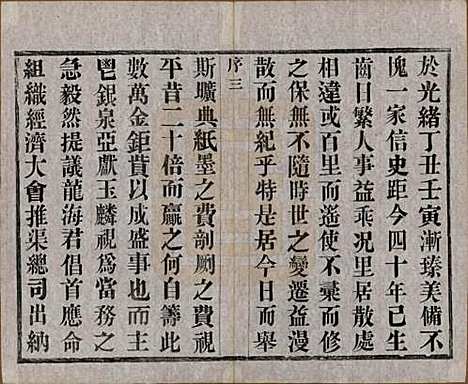 於光緒丁丑壬寅漸臻美備不
愧一家信史距今四十年已生
齒日繁人事益乖况里居散處
相違或百里而遙使不彙而修
之保無不隨時世之變遷益漫
散而無紀乎特是居今日而舉
序三
斯曠典紙墨之費剞劂之費視
平昔二十倍而贏之何自籌此
數萬金鉅貲以成盛事也而主
鬯銀泉亞獻玉麟視爲當務之
急毅然提議龍海君倡首應命
組織經濟大會推渠總司出納